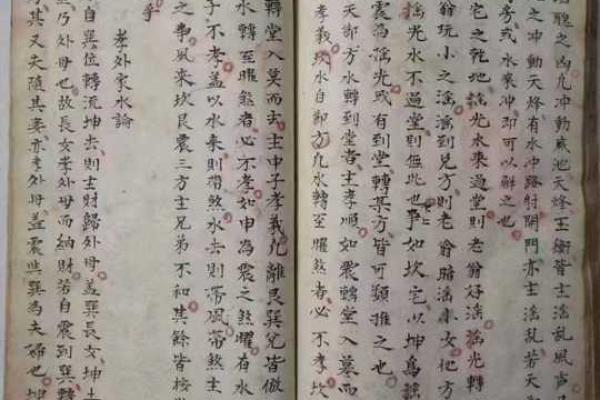 聰之凶九冲動咸池天烽玉衡皆主淫亂風声
之冲動天烽有水冲路射開門亦主淫亂若天
房或水來冲即可以解之也
宅之乾地謠光水來過堂則老翁好淫謠光轉
翁玩小之謠謠到兌方則老翁賠淫小女他方
謠光水不過堂則無此也事如坎宅以坤爲
震爲謠光或有到堂轉某方皆可類推之也
天卻方水轉到堂者主孝順如震轉堂入墓而
孝義坎水自卻方九水轉至曜煞者必不孝坎
轉堂入莫而去主中子孝義九離艮巽兌皆倣
水轉至曜煞者必不孝如申為震之煞曜有水
子不孝蓋以水來則帶煞水去則帶風帶煞主
之事風來坎艮震三方主兄弟不和其餘皆按
乎
孝外家水論
自巽位轉流坤去則主財歸外母蓋巽長女坤土
主乃外母也故長女孝外母而納財若自震到巽轉
其又夫隨其妻亦孝外母蓋震巽為夫婦也坤